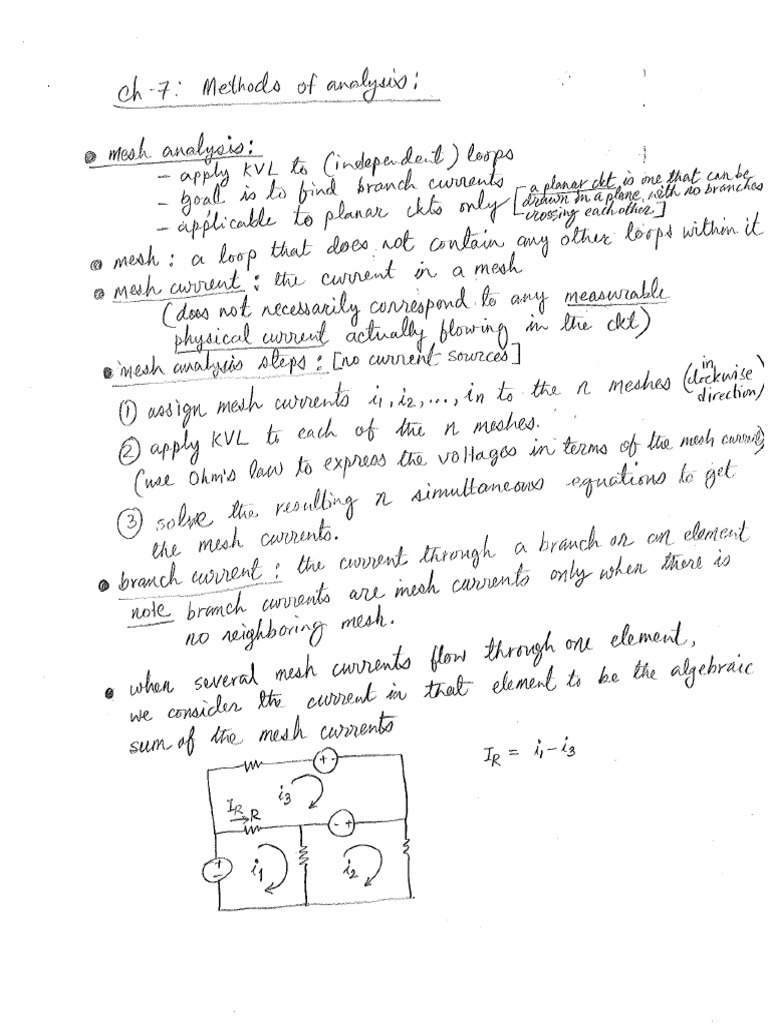 Ch-7: Methods of analysis:
• mesh analysis:
– apply KVL to (independent) loops
– goal is to find branch currents
– applicable to planar ckts only [a planar ckt is one that can be
drawn in a plane with no branches
crossing each other]
• mesh: a loop that does not contain any other loops within it
• mesh current: the current in a mesh
(does not necessarily correspond to any measurable
physical current actually flowing in the ckt)
• mesh analysis steps: [no current sources]
① assign mesh currents i1, i2, ..., in to the n meshes (in clockwise direction)
② apply KVL to each of the n meshes.
(use Ohm's law to express the voltages in terms of the mesh currents)
③ solve the resulting n simultaneous equations to get
the mesh currents.
• branch current: the current through a branch or an element
note branch currents are mesh currents only when there is
no neighboring mesh.
• when several mesh currents flow through one element,
we consider the current in that element to be the algebraic
sum of the mesh currents
IR = i1 - i3
+ -
i3
IR R
- +
+
-
i1
i2